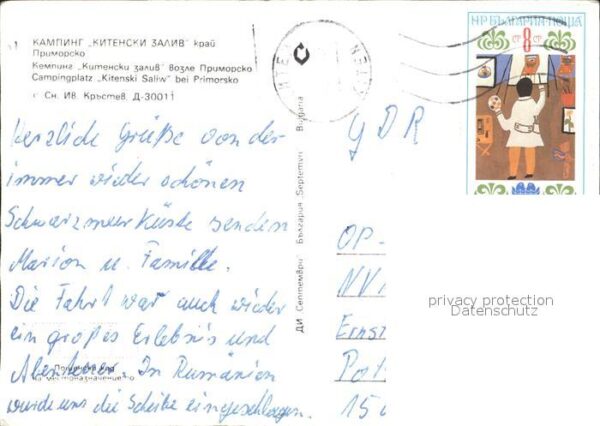 КАМПИНГ „КИТЕНСКИ ЗАЛИВ" край
Приморско
Кемпинг „Китенски залив" возле Приморско
Campingplatz „Kitenski Saliw" bei Primorsko
Сн. Ив. Кръстев, Д-30011
НР БЪЛГАРИЯ ПОЩА
СТ 8 СТ
ДИ Септември България Septemvri Bulgaria
GDR
Herzliche Grüße von der
immer wieder schönen
Schwarzmeerküste senden
Marion u. Familie.
Die Fahrt war auch wieder
ein großes Erlebnis und
Abenteuer. In Rumänien
wurde uns die Scheibe eingeschlagen.
на местоназначението
OP-
NV
Ernst
Pots
15
privacy protection
Datenschutz